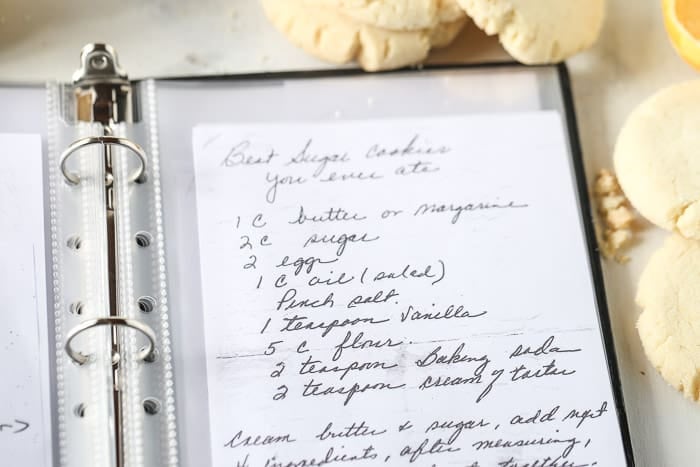 Best Sugar Cookies
you ever ate
1 c butter or margarine
2 c sugar
2 eggs
1 c oil (salad)
Pinch salt.
1 teaspoon vanilla
5 c flour.
2 teaspoon Baking soda
2 teaspoon cream of tartar
Cream butter & sugar, add next
4 ingredients, after measuring,
together.